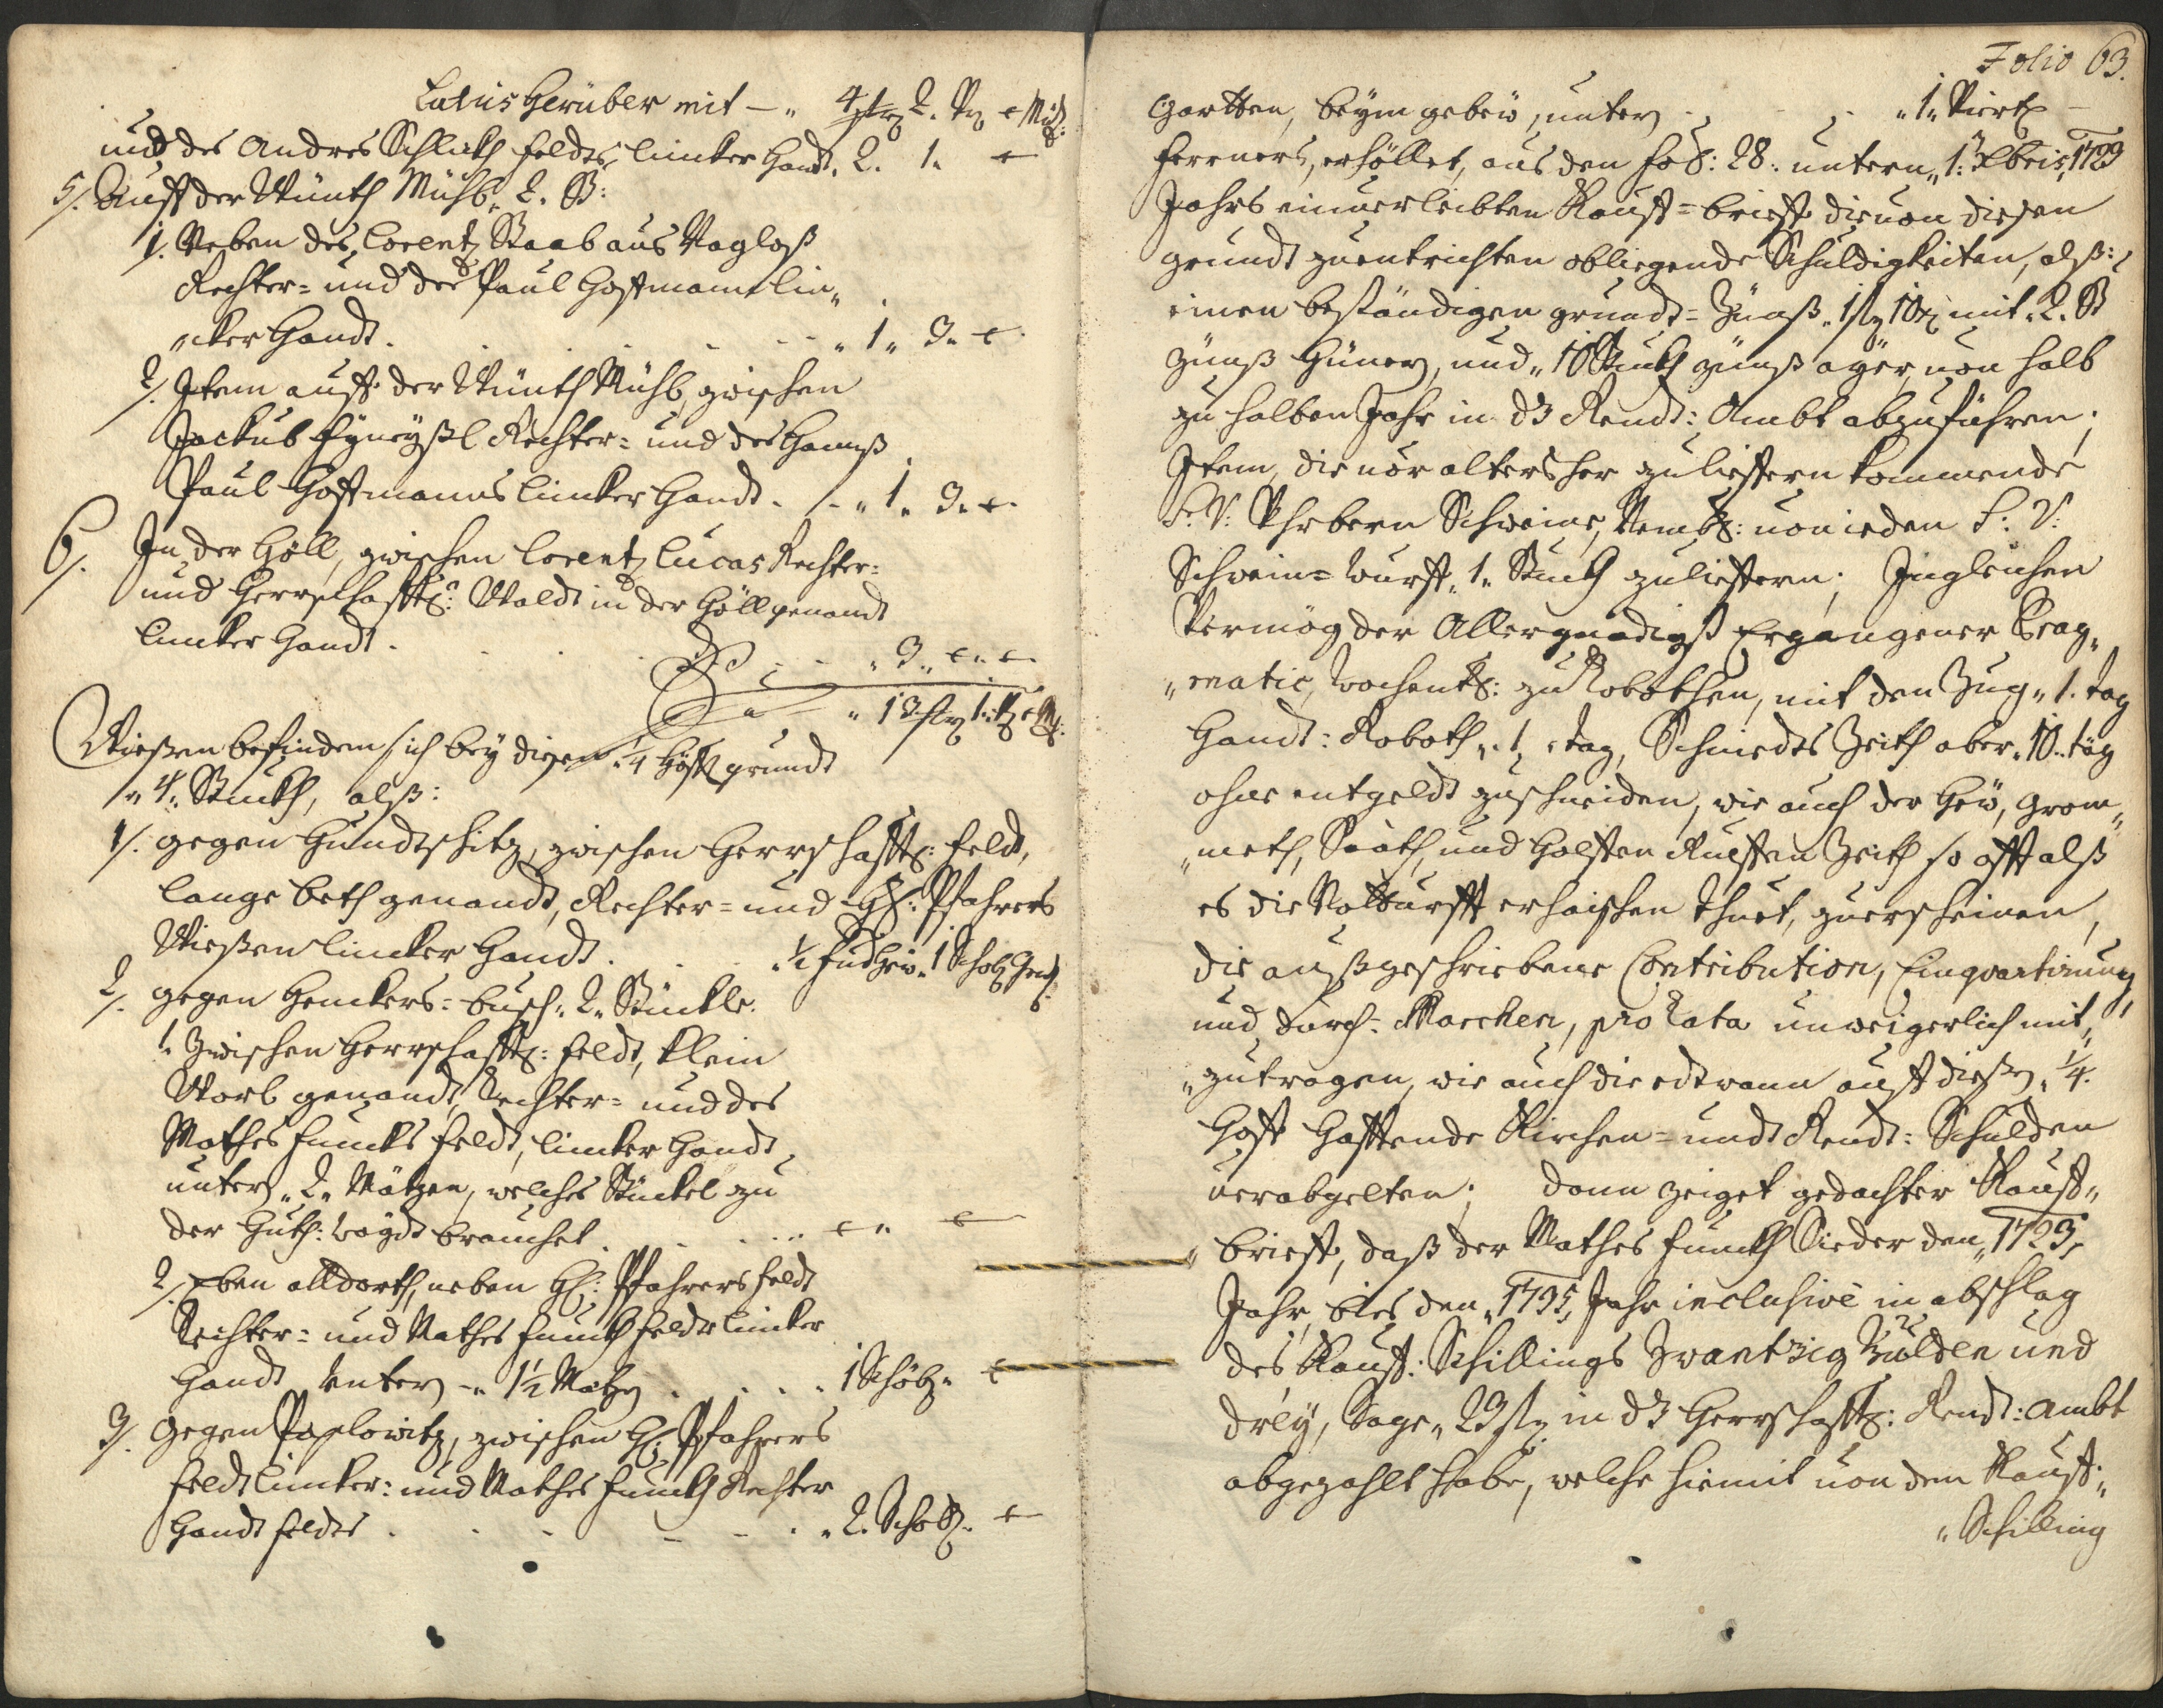 Latus herüber mit — „ 4 str 2. Vr. e Mäß:
und des Andres Schlath feldts, lincker handt. 2. 1. e
5/. Auff der Wünth Mühl, 2. St:
1/. Neben des Lorentz Staab aus Nagloß
Rechter= und des Paul Hoffmann lin„
„cker handt. „ 1 „ 3. e
2/. Item auff der Wünth Mühl, zwischen
Jackub Rechter= und des Hanß
Paul Hoffmanns lincker handt. „ 1 „ 3. e.
6/. In der Höll, zwischen Lorentz Lucas Rechter=
und herrschafftl: Waldt in der Höll genandt
lincker handt.
„ 3 „ e „ e
„ 13 str 1. Vr e M:
Wießen befinden sich bey diesen ¼ hoff grundt
„ 4 „ Stuckh, alß:
1/. gegen Hundtschitz, zwischen herrschafftl: feldt,
lange beth genandt, Rechter= und H: Pfahrers
Wießen lincker handt. „ ½ fud hew „ 1 Schob
2/. gegen Henckers= busch „ 2 „ Stückle.
1. Zwischen herrschafftl: feldt, klein
Worb genandt, Rechter= und des
Mathes Funcks feldt, lincker handt,
unter „ 2 „ Mätzen, welches Stückel zu
der Huth: waydt brauchet. e „ e
2/. Eben alldorth, neben H: Pfahrers feldt
Rechter= und Mathes Funckh feldt lincker
handt unter „ 1½ Matzen . . . . 1 Schöb „ e
3/. gegen Paslowitz, zwischen H: Pfahrers
feldt lincker: und Mathes Funckh Rechter
handt feldts . . . . „ 2. Schob. e
Folio 63.
Gartten, beym gebew, unter . . „ 1 „ Viertl —
ferners, erhöllet, aus den fol: 28: untern „ 1: Xbris, 1723
Jahrs einverleibten Kauff=brieff die von diesen
grundt zuentrichten obliegende Schuldigkeiten, alß:
einen beständigen grundt= Zünß „ 1 fl 10 x mit „ 2. St
Zünß Hüner, und „ 10 Stuckh zünß ayer, von halb
zu halben Jahr in dz Rendt: Ambt abzuführen;
Item, die vor alters her zu lieffern kommende
S: V: Schweine, Nembl: von ieden S: V:
Schwein= wurff „ 1 „ Stuckh zulieffern; Ingleichen
Vermög der Allergnädigst Ergangener Prag„
„matic, wochentl: zu Robothen, mit den Zug „ 1. tag
Handt: Roboth „ 1 „ tag, Schniedts Zeith aber „ 10 „ täg
ohne entgeldt zuschneiden, wie auch der Hew, Grom„
„meth, Saath, und Zeith so offt alß
es die Notturfft erhaischen thuet, zuerscheinen,
die außgeschriebene Contribution, Einquartirung
und durch: Marchen, pro Rata unweigerlich mit„
„zutragen, wie auch die edtwann auff dießen „ ¼.
hoff hafftende Kirchen= undt Rendt: Schulden
verabgelten; dann zeiget gedachter Kauff„
„brieff, daß der Mathes Funckh Sieder den „ 1723,
Jahr, bies den „ 1735, Jahr inclusive in abschlag
des Kauff: Schillings Zwantzig Gulden und
drey, Sage „ 23 fl in dz herrschafftl: Rendt: ambt
abgezahlt habe, welche hiemit von dem Kauff„
„Schilling